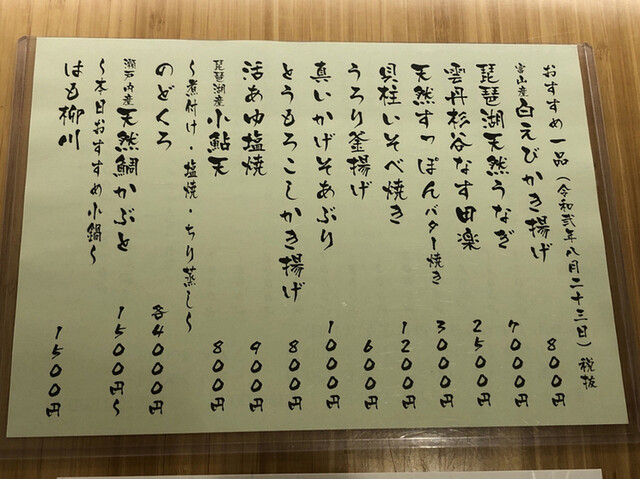 おすすめ一品(令和弐年八月二十三日)税抜
富山産 白えびかき揚げ 800円
琵琶湖天然うなぎ 7000円
雲丹杉谷なす田楽 2500円
天然すっぽんバター焼き 3000円
貝柱いそべ焼き 1200円
うろり釜揚げ 600円
真いかげそあぶり 1000円
とうもろこしかき揚げ 800円
活あゆ塩焼 900円
琵琶湖産 小鮎天 800円
〜煮付け・塩焼・ちり蒸し〜
のどくろ 各4000円
瀬戸内産 天然鯛かぶと 1500円〜
〜本日おすすめ小鍋〜
はも柳川 1500円